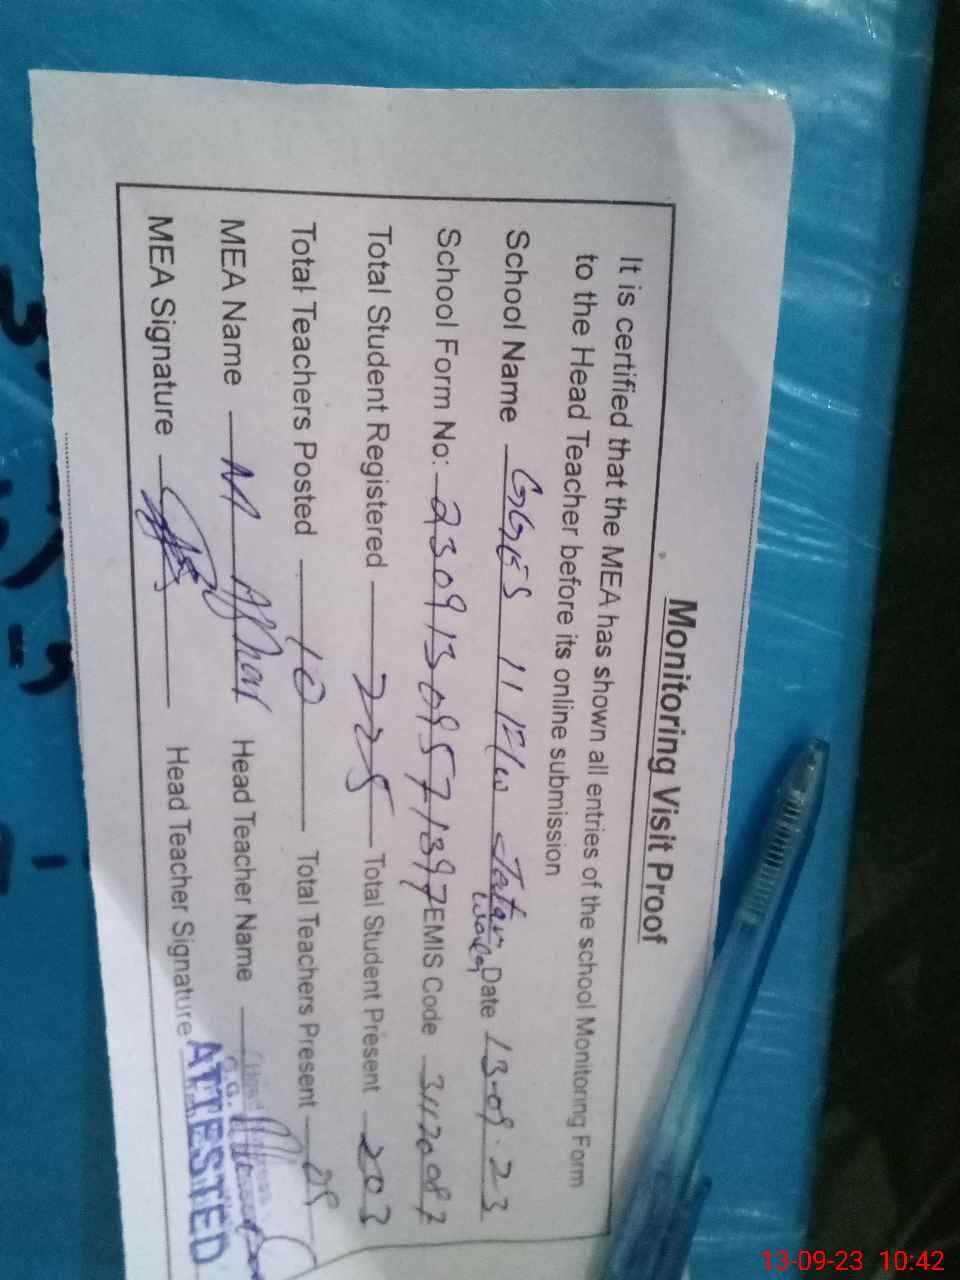 Monitoring Visit Proof
It is certified that the MEA has shown all entries of the school Monitoring Form
to the Head Teacher before its online submission
School Name GGES 11 F/W Date 13-09-23
School Form No: 23091309571397 EMIS Code
Total Student Registered 225 Total Student Present 203
Total Teachers Posted 10 Total Teachers Present
MEA Name M Afhar Head Teacher Name
MEA Signature Head Teacher Signature
ATTESTED
13-09-23 10:42